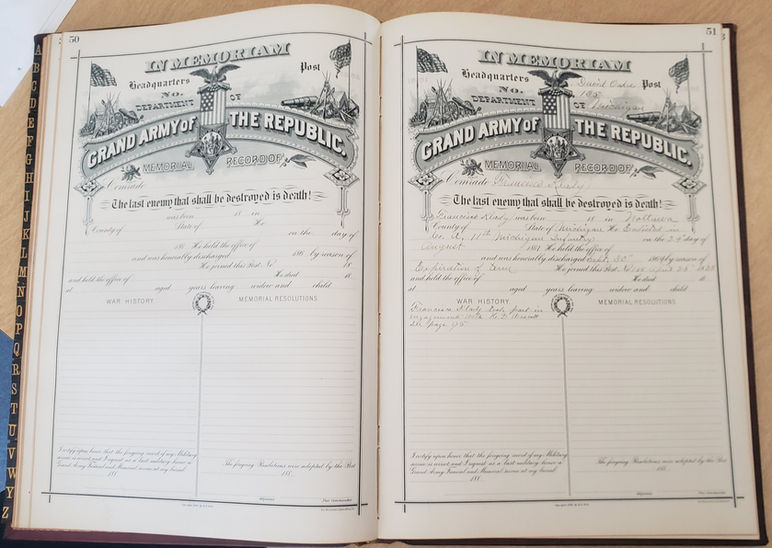 A
B
C
D
E
F
G
H
I
J
K
L
M
N
O
P
Q
R
S
T
U
V
W
Y
Z
50
IN MEMORIAM
Headquarters Post
No.
DEPARTMENT OF
GRAND ARMY OF THE REPUBLIC.
MEMORIAL RECORD OF
Comrade
The last enemy that shall be destroyed is death!
was born 18 in
County of State of He
on the day of
186 He held the office of
and was honorably discharged 186 by reason of
He joined this Post No 18
and held the office of He died 18
at aged years leaving widow and child
WAR HISTORY.
MEMORIAL RESOLUTIONS.
I certify upon honor that the forgoing record of my Military
service is correct and I request as a last military honor a
Grand Army Funeral and Memorial service at my burial.
188
The forgoing Resolutions were adopted by the Post
188
Adjutant. Post Commander.
51
IN MEMORIAM
Headquarters David Post
No. 135
DEPARTMENT OF Michigan
GRAND ARMY OF THE REPUBLIC.
MEMORIAL RECORD OF
Comrade Francisco
The last enemy that shall be destroyed is death!
Francisco was born 18 in Nottawa
County of State of Michigan He Enlisted in
Co. A, 11th Michigan Infantry on the 24 day of
August 1861 He held the office of
and was honorably discharged Sept. 30th 1864 by reason of
Expiration of Term He joined this Post No April 18
and held the office of He died 18
at aged years leaving widow and child
WAR HISTORY.
MEMORIAL RESOLUTIONS.
Francisco took part in
engagements with
page 95
I certify upon honor that the forgoing record of my Military
service is correct and I request as a last military honor a
Grand Army Funeral and Memorial service at my burial.
188
The forgoing Resolutions were adopted by the Post
188
Adjutant. Post Commander.